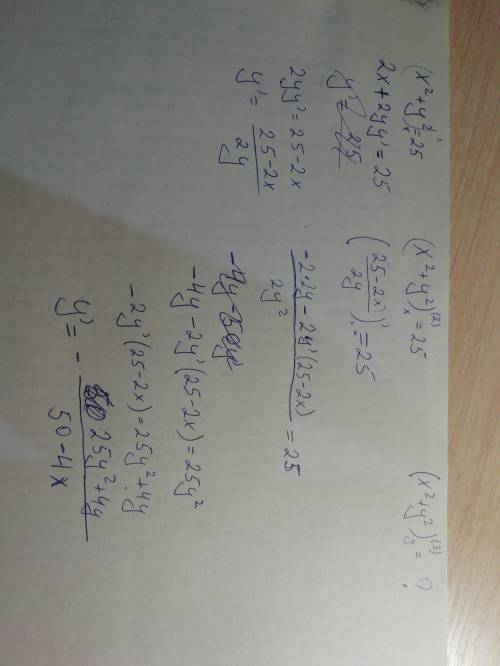 (x²+y²)'ₓ=25
2x+2yy'=25
y'= 25
2yy'=25-2x
y'= (25-2x)/(2y)
(x²+y²)ₓ⁽²⁾=25
((25-2x)/(2y))'ₓ=25
(-2·2y-2y'(25-2x))/(2y²) = 25
-4y-2y'(25-2x)=25y²
-2y'(25-2x)=25y²+4y
y'= - (25y²+4y)/(50-4x)
(x²+y²)ᵧ⁽³⁾= ?